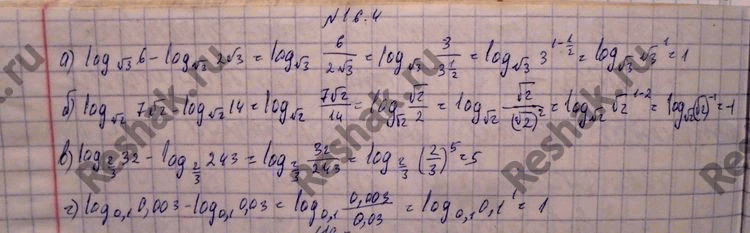 №16.4
а) log_√3 6 - log_√3 2√3 = log_√3 6/(2√3) = log_√3 3/3^(1/2) = log_√3 3^(1-1/2) = log_√3 √3^1 = 1
б) log_√2 7√2 - log_√2 14 = log_√2 7√2/14 = log_√2 √2/2 = log_√2 √2/(√2)^2 = log_√2 √2^(1-2) = log_√2 (√2)^(-1) = -1
в) log_2/3 32 - log_2/3 243 = log_2/3 32/243 = log_2/3 (2/3)^5 = 5
г) log_0,1 0,003 - log_0,1 0,03 = log_0,1 0,003/0,03 = log_0,1 0,1^1 = 1
Reshak.ru
Reshak.ru
Reshak.ru